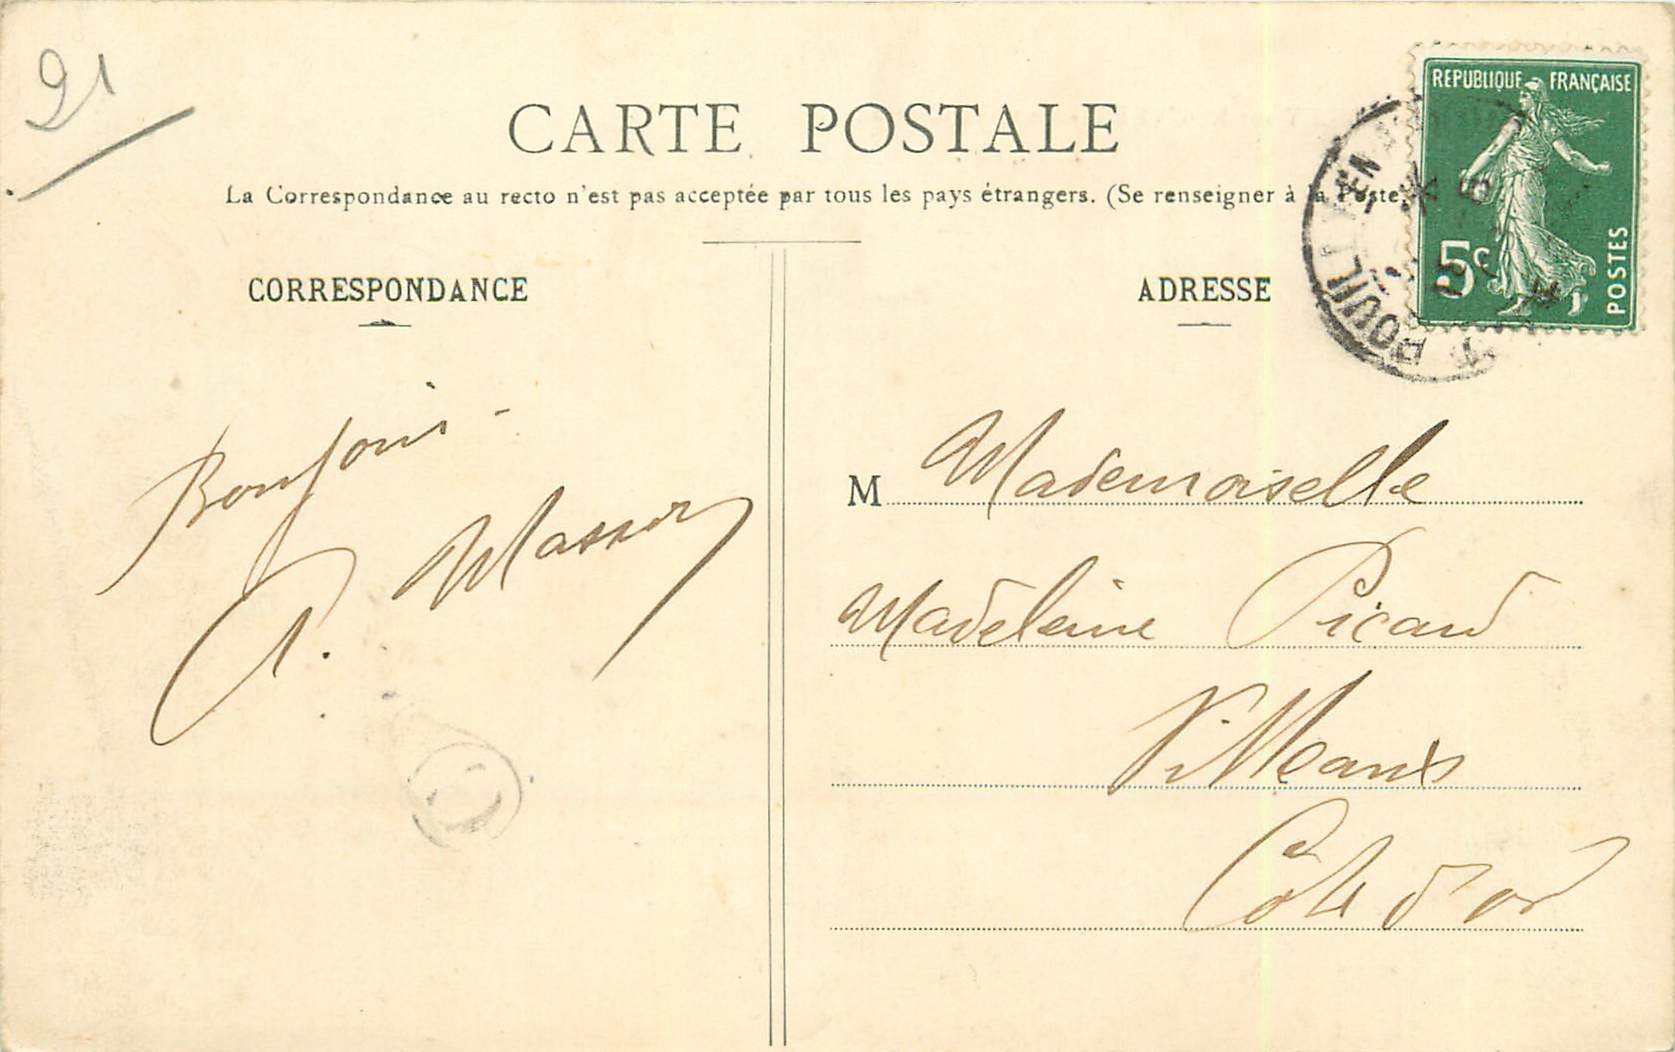 91
CARTE POSTALE
La Correspondance au recto n'est pas acceptée par tous les pays étrangers. (Se renseigner à la Poste
REPUBLIQUE FRANÇAISE
5c
POSTES
CORRESPONDANCE
ADRESSE
Bonjour
M Mademoiselle
Madeleine Picard
Villeaux
Côte d'or